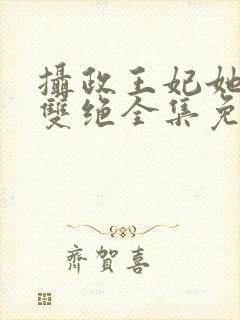 攝政王妃她
雙绝全集免
齊賀喜